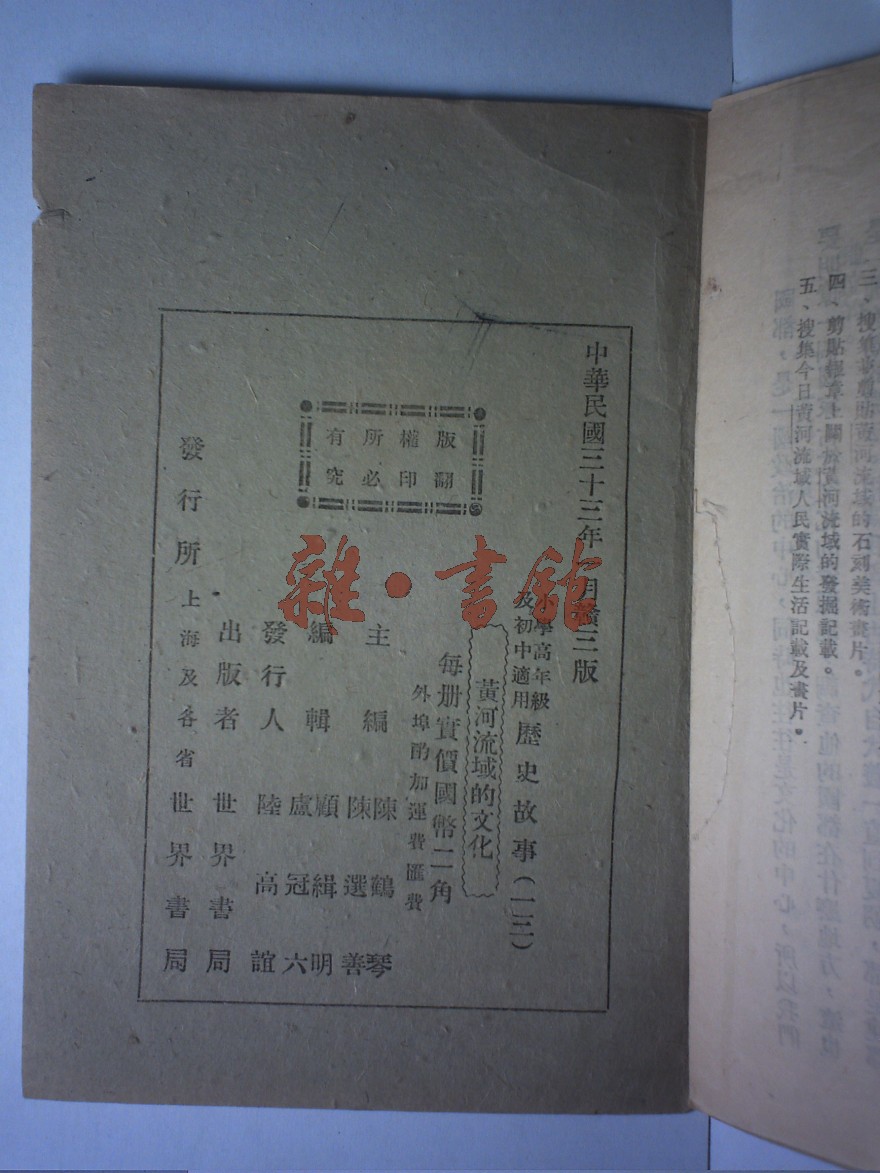 三、搜集
河流域的石刻美術畫片。
四、剪貼報章上關於黃河流域的發掘記載。
五、搜集今日黃河流域人民實際生活記載及畫片。
中華民國三十三年 月贛三版
學高年級
及初中適用
歷史故事(一三)
黃河流域的文化
每册實價國幣二角
外埠酌加運費匯費
版權所有
翻印必究
主編 陳鶴琴
陳選善
編輯 顧緝明
盧冠六
發行人 陸高誼
出版者 世界書局
發行所 上海及各省 世界書局
雜·書館